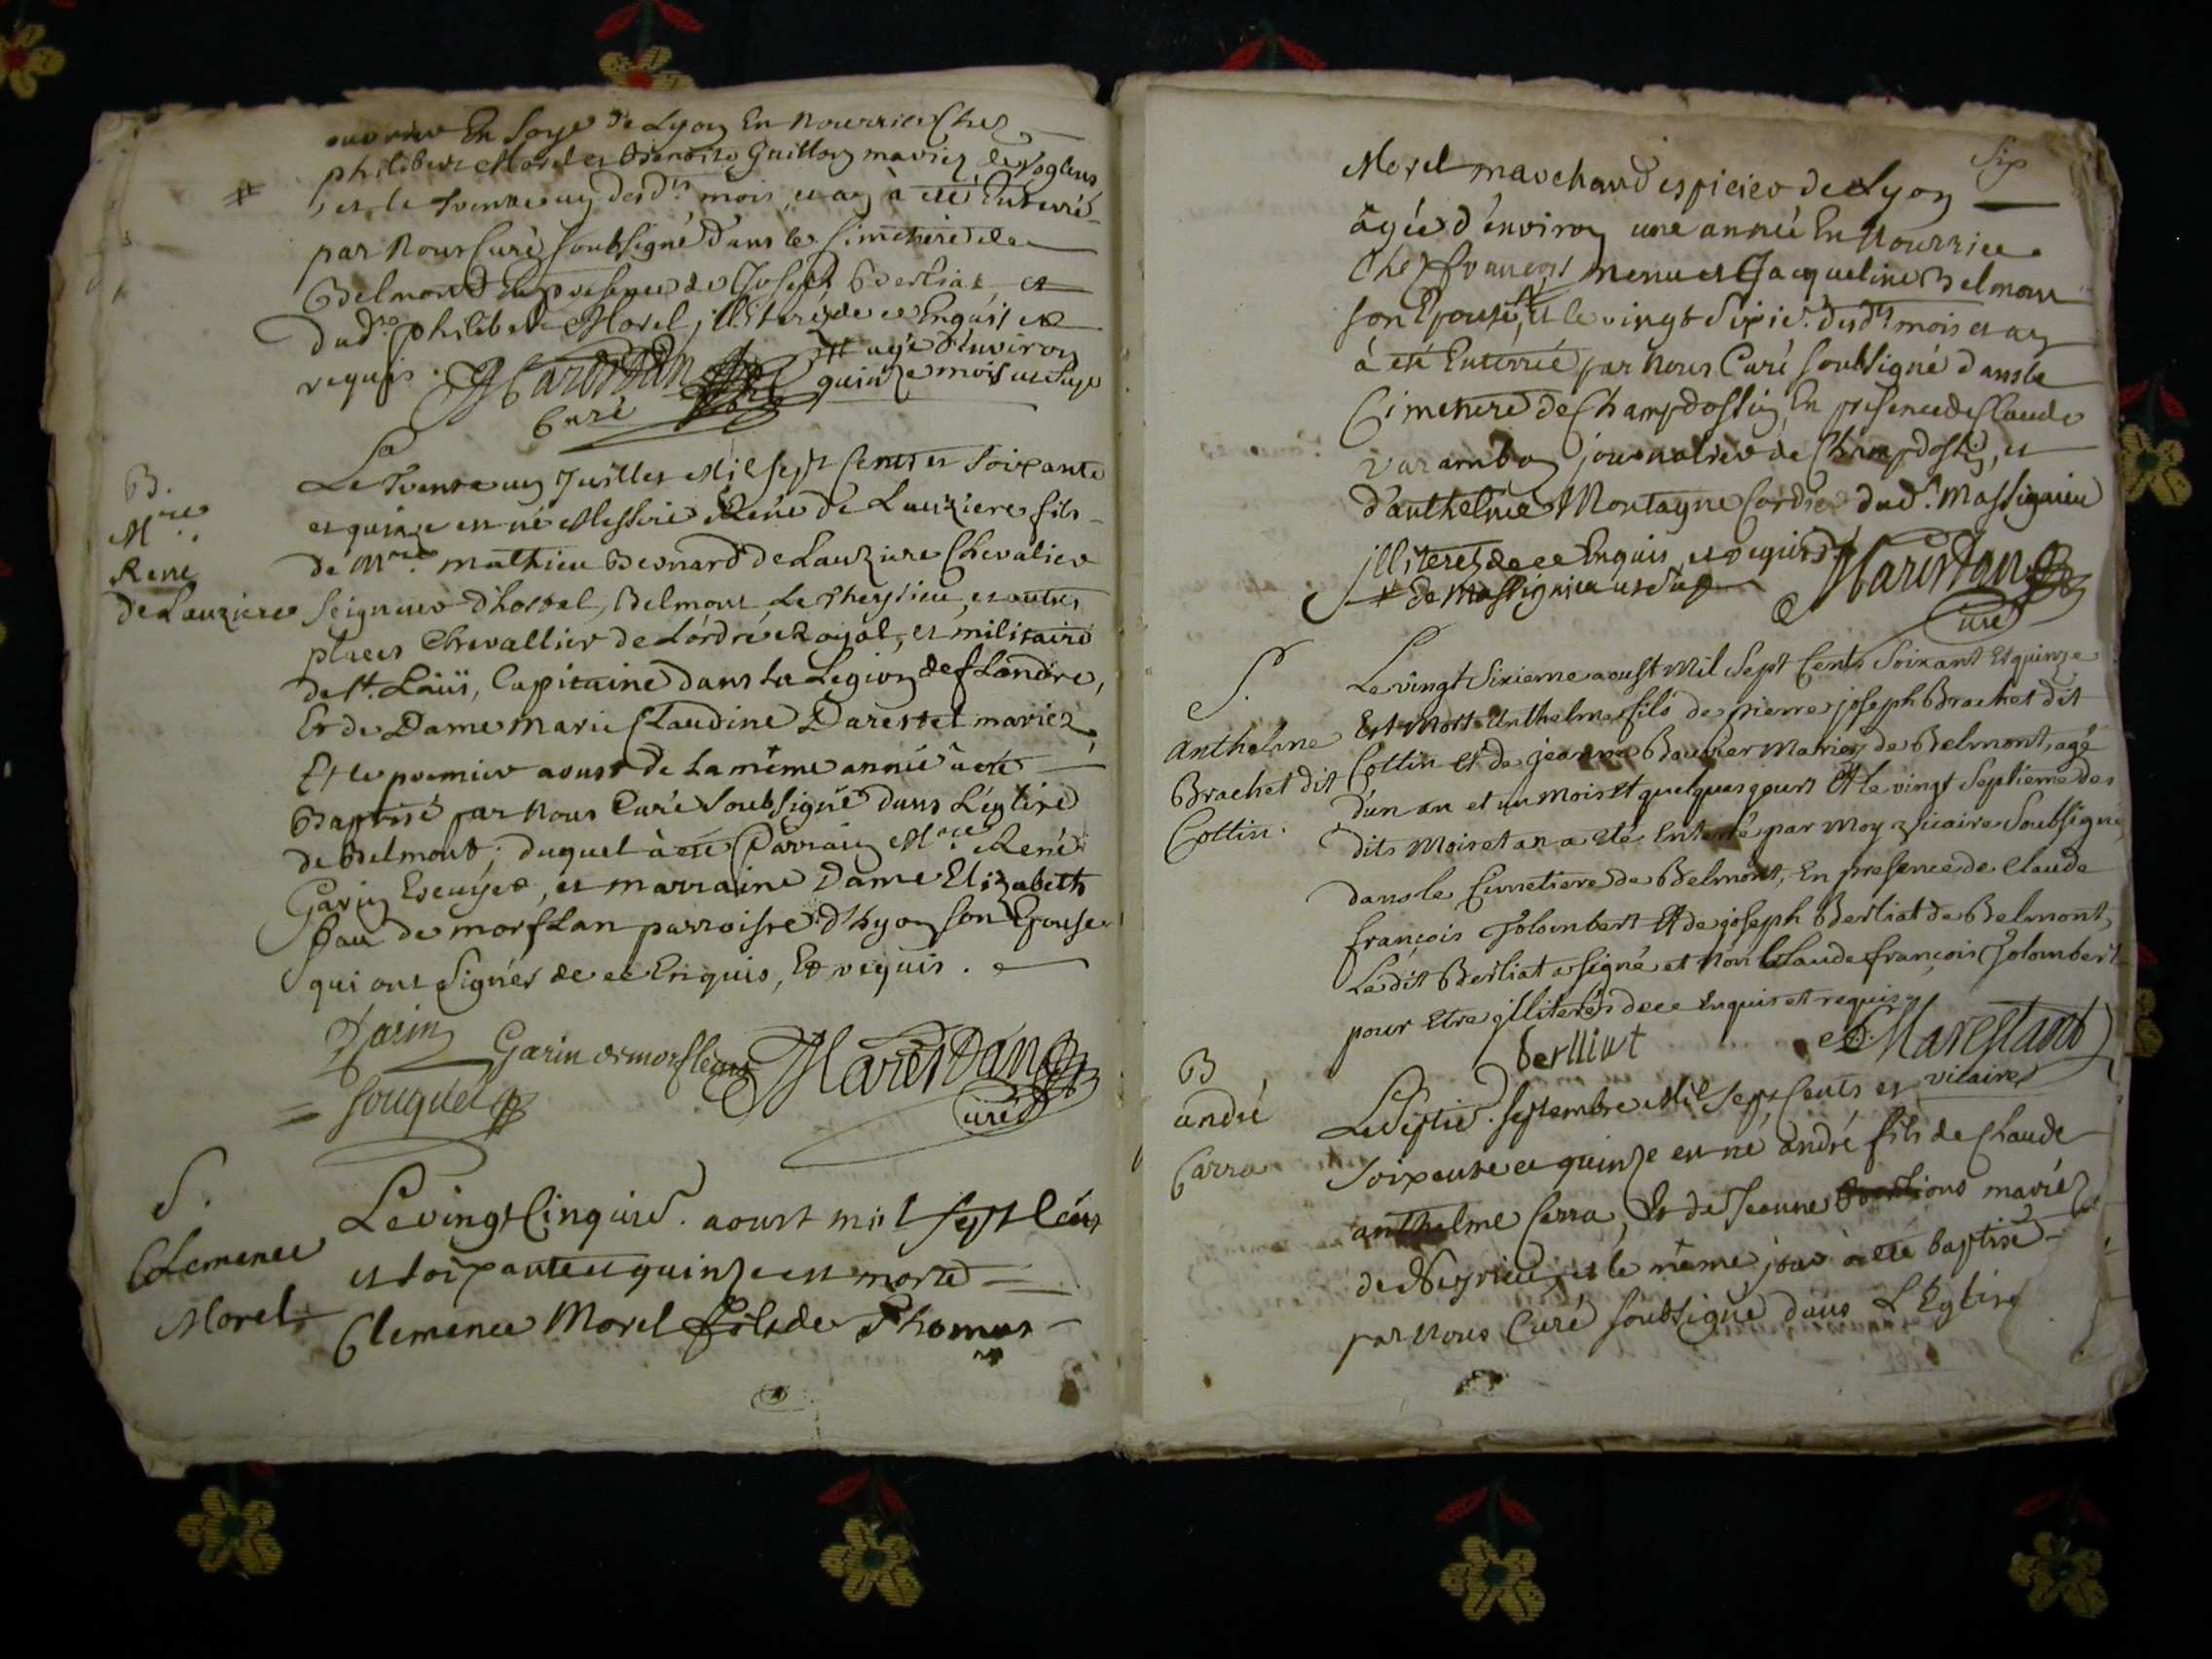 ouvrier En Soye de Lyon En Nourrice Chez
philibert Morel et Benoite Guillon mariez de Voglens,
# et le trente un desdts mois et an à eté Enterré
par Nous Curé soubsigné dans le Cimetiere de
Belmond En presence de Joseph Berliat et
dudt philibert Morel, illiteréz de ce Enquis et
requis. Marestan # agé d'environ
Curé quinze mois
B.
Mre
René
De Lauziere
Le Trente un Juillet Mil sept Cents et Soixante
et quinze est né Messire René De Lauziere fils
de Mre mathieu Bernard de Lauziere Chevalier
Seigneur d'hostel, Belmont Le Theysieu, et autres
places Chevallier de L'ordre Royal, et militaire
de St. Loüis, Capitaine dans La Legion de flandre,
Et de Dame Marie Claudine Darestel mariez
Et le premier aoust de La même année a eté
Baptisé par Nous Curé Soubsigné dans L'église
de Belmont; duquel à eté Parrain Mre René
Garin Ecuyer, et marraine Dame Elizabeth
de morflan parroisse d'hyon son Epouse
qui ont Signés de ce Enquis, Et requis.
Garin Garin de morflans Marestan
souquet Curé
S.
Clemence
Morel
Le vingt Cinquie. aoust mil sept Cents
et soixante et quinze est morte
Clemence Morel fille de Thomas
Six
Morel marchand espicier de Lyon
âgée d'environ une année En Nourrice
Chez françois menu et Jacqueline Belmont
son Epouse, # et le vingt Sixie. desdts mois et an
à eté Enterrée par Nous Curé soubsigné dans le
Cimetiere de Champdossin En presence de Claude
varambon journalier de Champdossin, et
d'anthelme Montagne Cordier dudt. Massignieu
illiteréz de ce Enquis et requis Marestan
# de Massignieu Curé
S.
Anthelme
Brachet dit
Cottin.
Le vingt Sixieme aoust Mil Sept Cents Soixant Et quinze
Est Mort Anthelme fils de pierre joseph Brachet dit
Cottin et de jeanne Mariez de Belmont, agé
d'un an et un Mois Et quelques jours Et le vingt Septiéme des
dits Mois et an a eté Enterré par Moy Vicaire Soubsigné
dans le Cimetiere de Belmont, En presence de Claude
françois Jolombert Et de joseph Berliat de Belmont,
Le dit Berliat a signé et Non Claude françois Jolombert
pour Etre illiterés de ce Enquis et requis
berlliat Marestant
vicaire
B
andré
Carra
Le Septie. septembre Mil Sept Cents et
soixante et quinze est né andré fils de Claude
anthelme Carra, Et de Jeanne mariéz
de Neyrieu, et le même jour à eté baptisé
par Nous Curé soubsigné dans L'Eglise